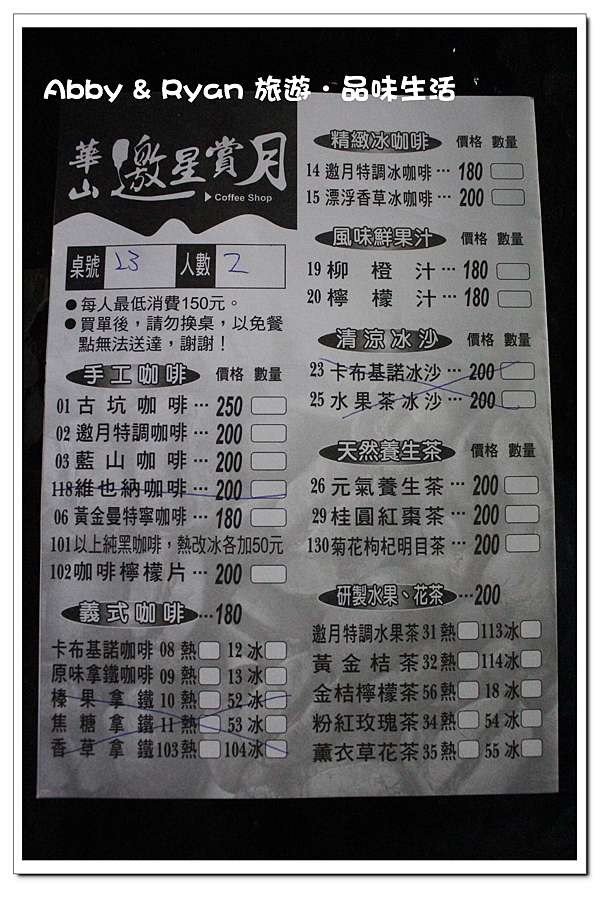 Abby & Ryan 旅遊・品味生活
華山 邀星賞月
Coffee Shop
桌號 23 人數 2
●每人最低消費150元。
●買單後，請勿換桌，以免餐
點無法送達，謝謝！
手工咖啡 價格 數量
01 古坑咖啡… 250
02 邀月特調咖啡… 200
03 藍山咖啡… 200
118 維也納咖啡… 200
06 黃金曼特寧咖啡… 180
101 以上純黑咖啡，熱改冰各加50元
102 咖啡檸檬片… 200
義式咖啡…180
卡布基諾咖啡 08 熱 12 冰
原味拿鐵咖啡 09 熱 13 冰
榛果拿鐵 10 熱 52 冰
焦糖拿鐵 11 熱 53 冰
香草拿鐵 103 熱 104 冰
精緻冰咖啡 價格 數量
14 邀月特調冰咖啡… 180
15 漂浮香草冰咖啡… 200
風味鮮果汁 價格 數量
19 柳橙汁… 180
20 檸檬汁… 180
清涼冰沙 價格 數量
23 卡布基諾冰沙… 200
25 水果茶冰沙… 200
天然養生茶 價格 數量
26 元氣養生茶… 200
29 桂圓紅棗茶… 200
130 菊花枸杞明目茶… 200
研製水果、花茶…200
邀月特調水果茶 31 熱 113 冰
黃金桔茶 32 熱 114 冰
金桔檸檬茶 56 熱 18 冰
粉紅玫瑰茶 34 熱 54 冰
薰衣草花茶 35 熱 55 冰